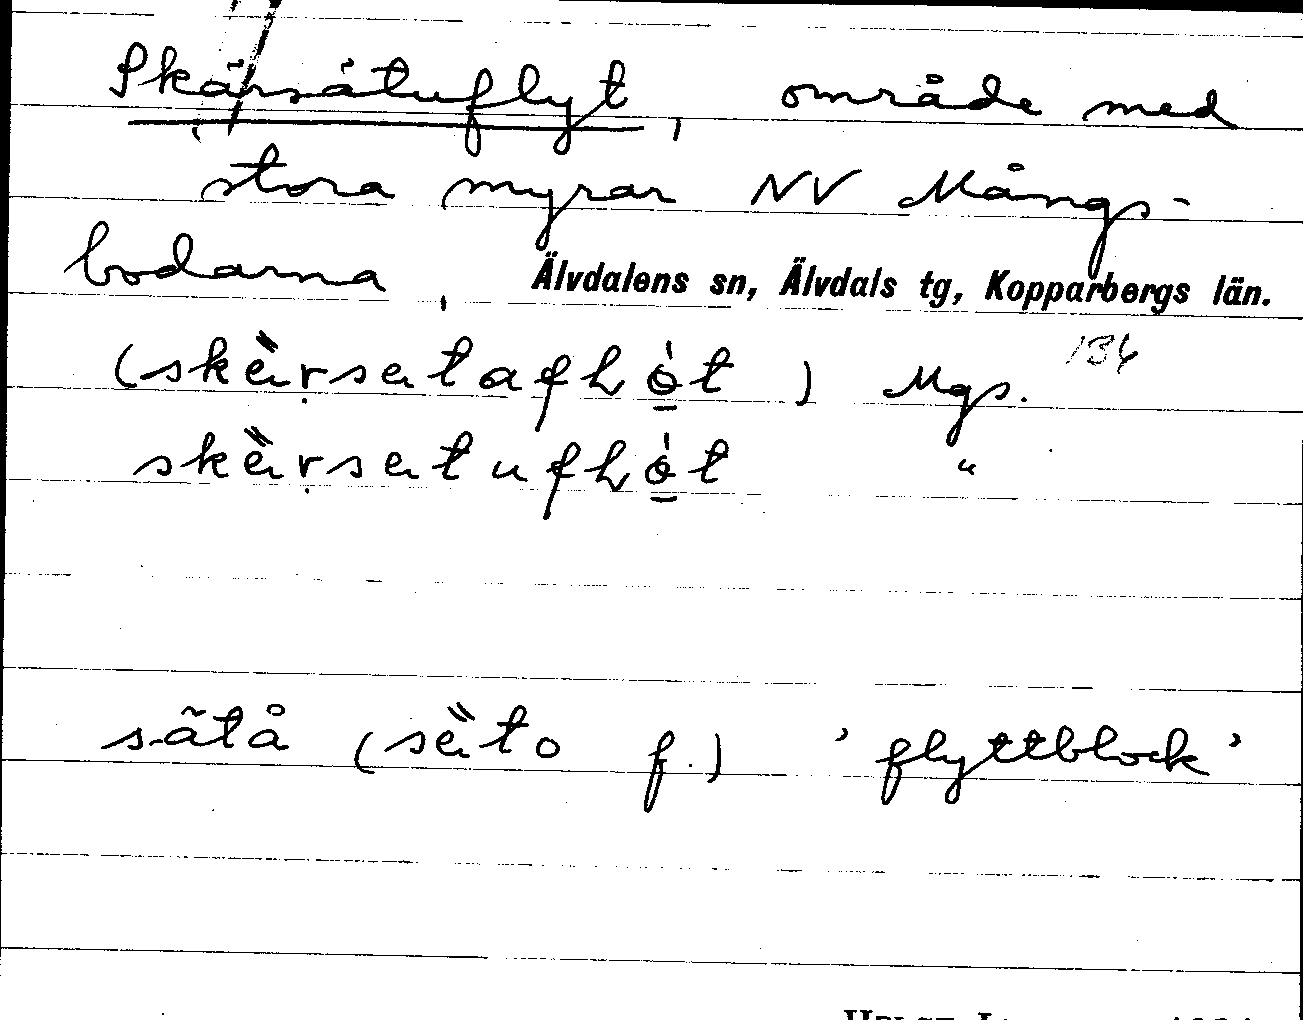 Skärsätuflyt, område med
stora myrar NV Mångs-
bodarna, Älvdalens sn, Älvdals tg, Kopparbergs län.
(skä̀rsätaflöt) Mgs. 136
skä̀rsätuflöt "
sätå (sä̀to f.) 'flyttblock'